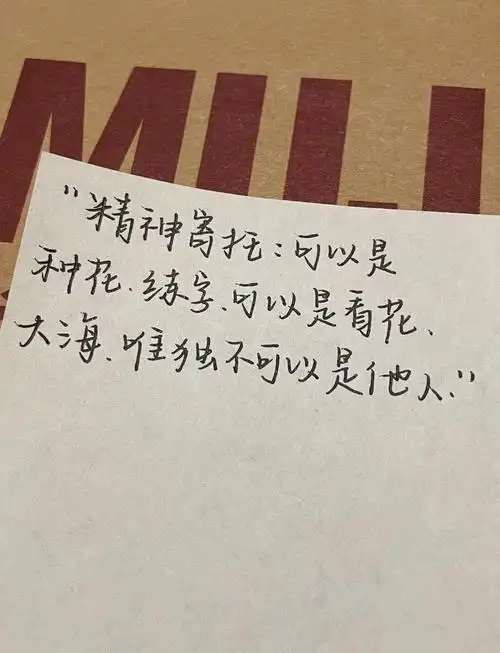 MILL
“精神寄托：可以是
种花、练字、可以是看花、
大海、唯独不可以是他人。”